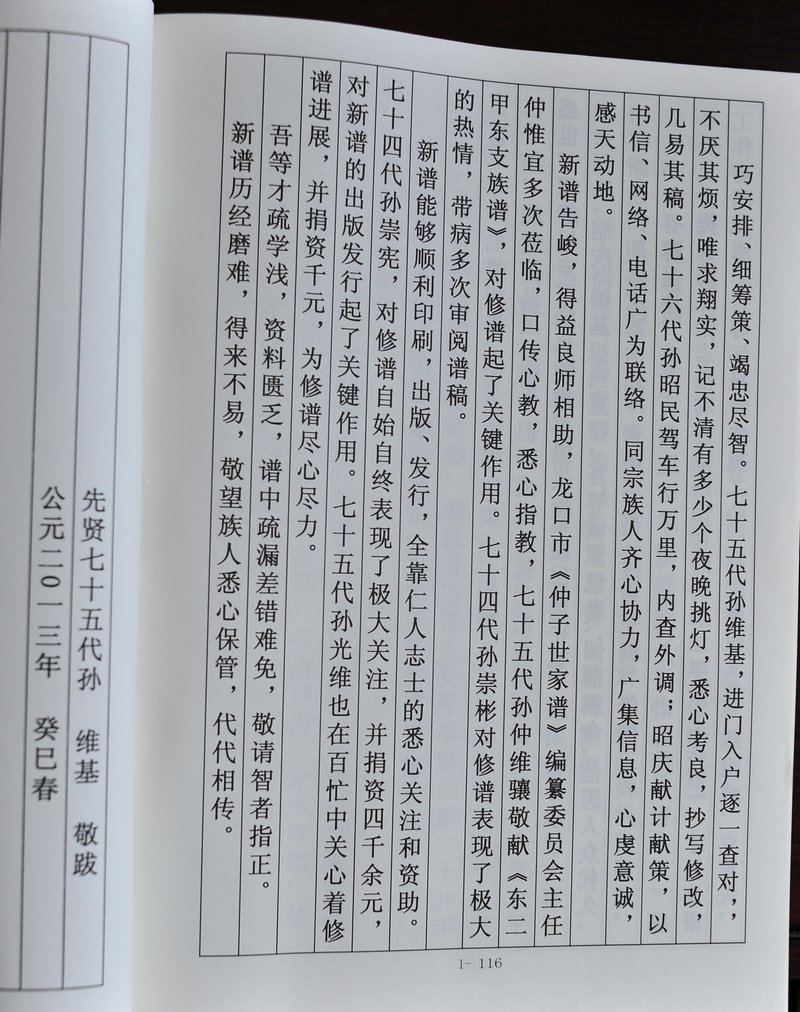 巧安排、细筹策、竭忠尽智。七十五代孙维基，进门入户逐一查对，，
不厌其烦，唯求翔实，记不清有多少个夜晚挑灯，悉心考良，抄写修改，
几易其稿。七十六代孙昭民驾车行万里，内查外调；昭庆献计献策，以
书信、网络、电话广为联络。同宗族人齐心协力，广集信息，心虔意诚，
感天动地。
新谱告峻，得益良师相助，龙口市《仲子世家谱》编纂委员会主任
仲惟宜多次莅临，口传心教，悉心指教，七十五代孙仲维骧敬献《东二
甲东支族谱》，对修谱起了关键作用。七十四代孙崇彬对修谱表现了极大
的热情，带病多次审阅谱稿。
新谱能够顺利印刷，出版、发行，全靠仁人志士的悉心关注和资助。
七十四代孙崇宪，对修谱自始自终表现了极大关注，并捐资四千余元，
对新谱的出版发行起了关键作用。七十五代孙光维也在百忙中关心着修
谱进展，并捐资千元，为修谱尽心尽力。
吾等才疏学浅，资料匮乏，谱中疏漏差错难免，敬请智者指正。
新谱历经磨难，得来不易，敬望族人悉心保管，代代相传。
1- 116
先贤七十五代孙 维基 敬跋
公元二〇一三年 癸巳春